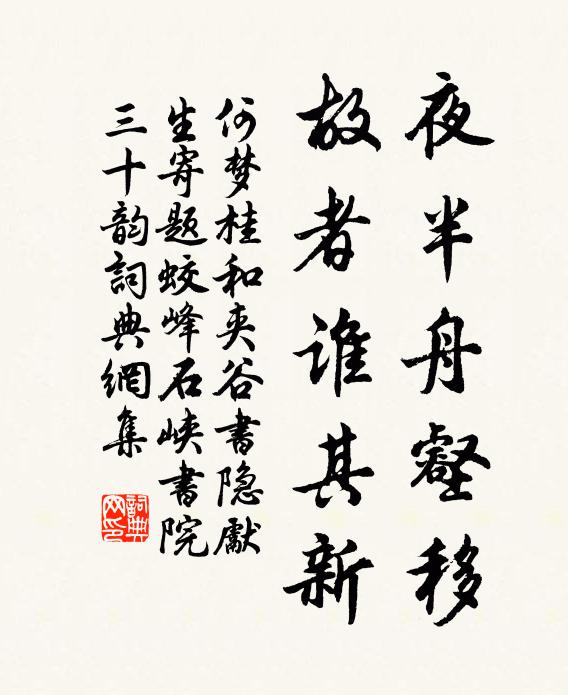 夜半舟壑移
故者谁其新
何梦桂和夹谷書隐獻
生寄题蛟峰石峡書院
三十韵詞典網集
詞典网印